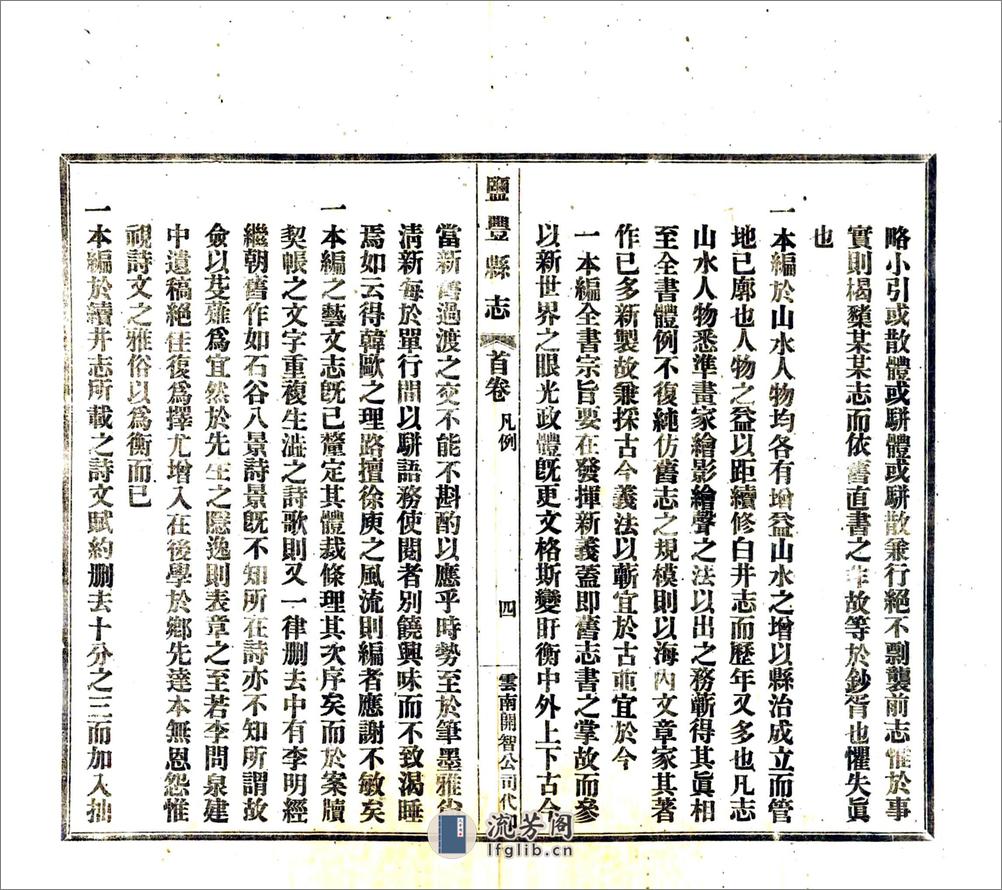 略小引或散體或駢體或駢散兼行絕不剽襲前志惟於事
實則楬櫫某某志而依舊直書之非故等於鈔胥也懼失眞
也
一本編於山水人物均各有增益山水之增以縣治成立而管
地已廓也人物之益以距續修白井志而歷年又多也凡志
山水人物悉準畫家繪影繪聲之法以出之務蘄得其眞相
至全書體例不復純仿舊志之規模則以海內文章家其著
作已多新製故兼採古今義法以蘄宜於古亦宜於今
一本編全書宗旨要在發揮新義蓋即舊志書之掌故而參
以新世界之眼光政體旣更文格斯變盱衡中外上下古今
鹽豐縣志 首卷 凡例 四 雲南開智公司代
當新舊過渡之交不能不斟酌以應乎時勢至於筆墨雅
淸新每於單行間以駢語務使閱者別饒興味而不致渴睡
焉如云得韓歐之理路擅徐庾之風流則編者應謝不敏矣
一本編之藝文志旣已釐定其體裁條理其次序矣而於案牘
契帳之文字重複生澁之詩歌則又一律删去中有李明經
繼朝舊作如石谷八景詩景旣不知所在詩亦不知所謂故
僉以芟薙爲宜然於先生之隱逸則表章之至若李問泉建
中遺稿絕佳復爲擇尤增入在後學於鄉先達本無恩怨惟
視詩文之雅俗以爲衡而已
一本編於續井志所載之詩文賦約删去十分之三而加入抽
流芳阁
lfglib.cn